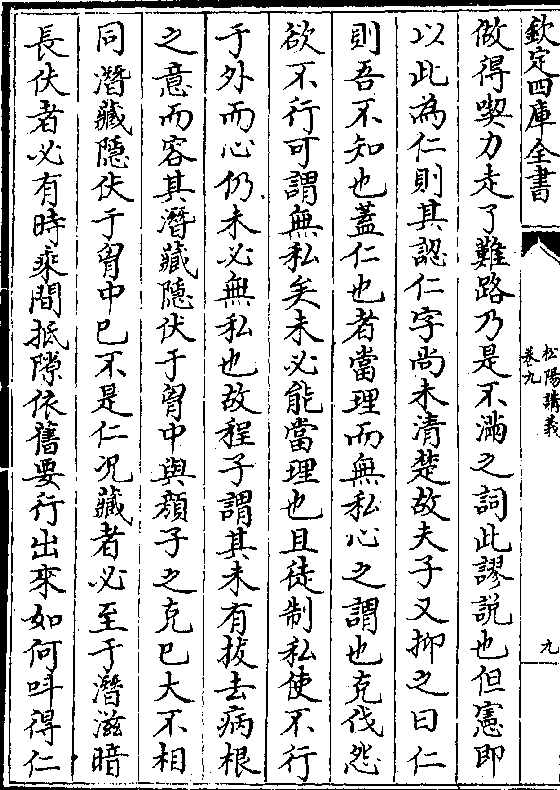 欽定四庫全書
松陽講義
卷九
九
做得喫力走了難路乃是不滿之詞此謬說也但憲即
以此為仁則其認仁字尚未清楚故夫子又抑之曰仁
則吾不知也蓋仁也者當理而無私心之謂也克伐怨
欲不行可謂無私矣未必能當理也且徒制私使不行
于外而心仍未必無私也故程子謂其未有拔去病根
之意而容其潛藏隱伏于胷中與顏子之克已大不相
同潛藏隱伏于胷中已不是仁况藏者必至于潛滋暗
長伏者必有時乘間抵隙依舊要行出來如何呌得仁